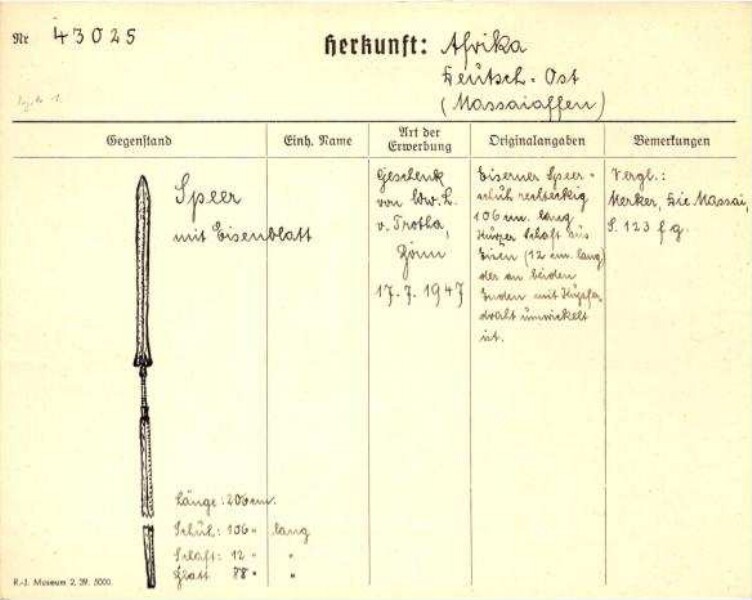 Nr 43025
Herkunft: Afrika
Deutsch-Ost
(Massaiaffen)
Gegenstand
Einh. Name
Art der Erwerbung
Originalangaben
Bemerkungen
Speer
mit Eisenblatt
Geschenk
von Wwe. L.
v. Trotha,
Bonn
17.7.1947
Eiserner Speer-
schuh rechteckig
106 cm. lang
Kurzer Schaft aus
Eisen (12 cm. lang)
der an beiden
Enden mit Kupfer
draht umwickelt
ist.
Vergl.:
Merker, Die Massai,
S. 123 f.g.
Länge: 206 cm.
Schuh: 106 " lang
Schaft: 12 " "
Blatt 88 " "
R.-J. Museum 2. 39. 5000.